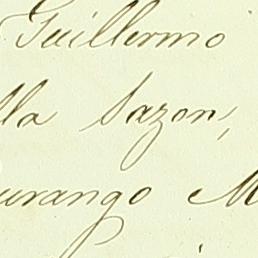 Guillermo
lla Sazon,
urango M